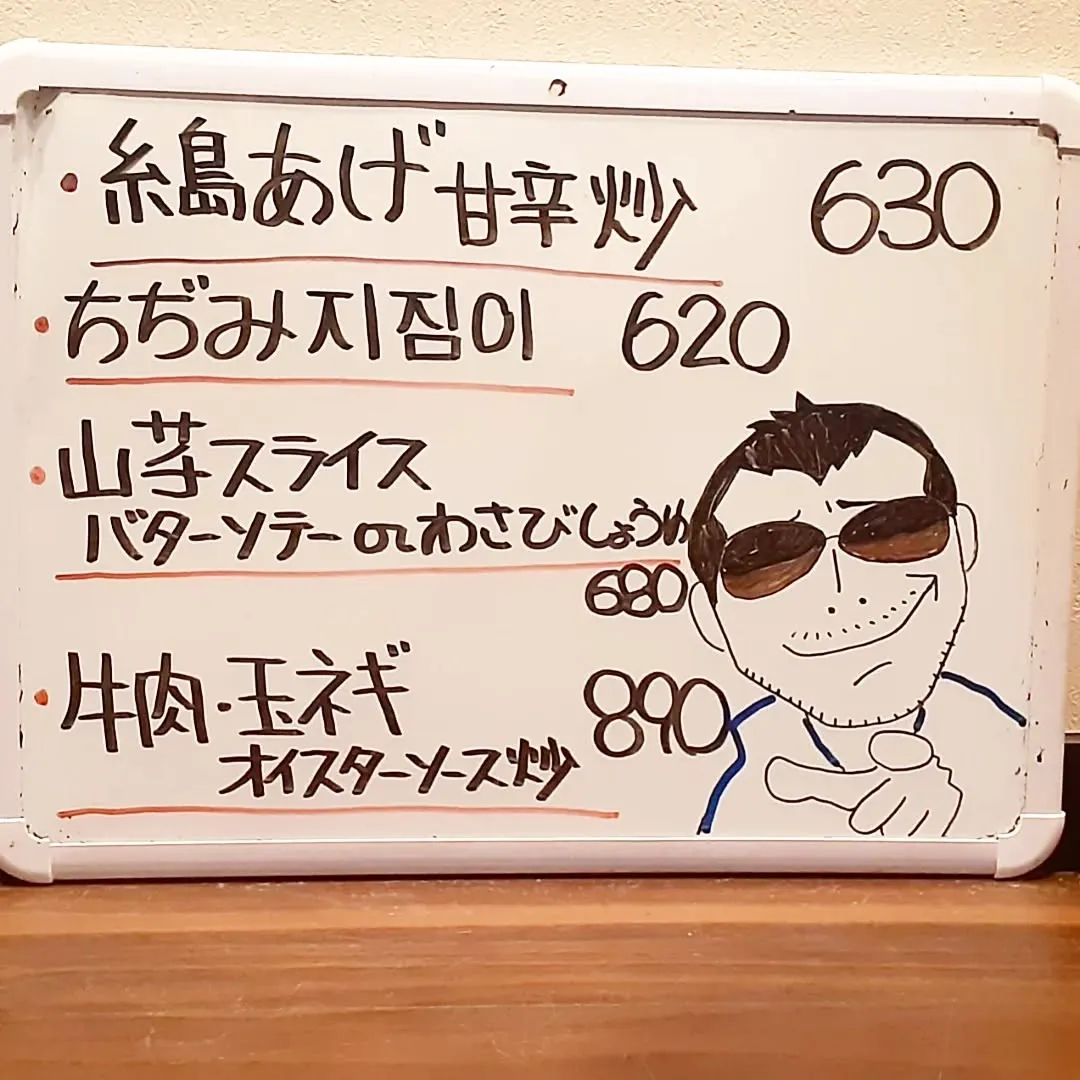 ・糸島あげ甘辛炒 630
・ちぢみ지짐이 620
・山芋スライス
バターソテー orわさびしょうゆ
680
・牛肉・玉ネギ 890
オイスターソース炒